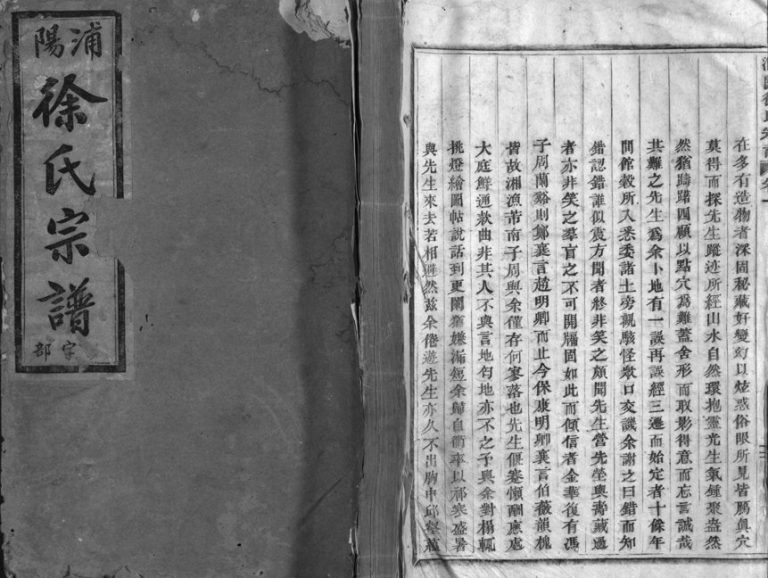 浦陽
徐氏宗譜
字部
在多有造物者深固秘藏好變幻以炫惑俗眼所見皆贋眞穴
莫得而探先生蹤迹所經山水自然環抱靈光生氣鍾聚盎然
然猶躊躇四顧以點穴爲難蓋舍形而取影得意而忘言誠哉
其難之先生爲余卜地有一誤再誤經三遷而始定者十餘年
間館穀所入悉委諸土旁親厳怪欸口交譏余謝之曰錯而知
錯認錯誰似袁方聞者終非笑之顧聞先生嘗先塋輿靑藏過
者亦非笑之羣盲之不可開牖固如此而傾信者金華復有馮
子周蘭谿則鄭襄言趙明卿而止今保康明卿襄言伯薇韻槐
皆故湘漁芾南子周與余僅存何寥落也先生偃蹇懶酬應處
大庭鮮通欵曲非其人不與言地勻地亦不之予與余對榻輒
挑燈繪圖帖說話到更闌猶嫌漏短余歸自衢卒以祁寒盛暑
與先生來去若相避然兹余倦遊先生亦久不出胸中邱壑